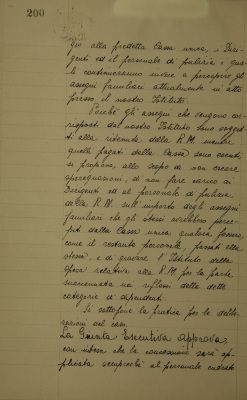 200
gro alla predetta Cassa unica, i Diri-
genti ed il personale di pulizia i qua-
li continueranno invece a percepire gli
assegni familiari attualmente in atto
presso il nostro Istituto.
Poichè gli assegni che vengono cor-
risposti dal nostro Istituto sono sogget-
ti alla ritenuta della R.M. mentre
quelli pagati dalla Cassa sono esenti,
si propone, allo scopo di non creare
sperequazioni, di non fare carico ai
Dirigenti ed al personale di pulizia
della R.M. sull'importo degli assegni
familiari che gli stessi avrebbero perce-
pito dalla Cassa unica qualora fossero,
come il restante personale, passati alla
stessa, e di gravare l'Istituto della
spesa relativa alla R.M. per la parte
menzionata nei riflessi delle dette
categorie di dipendenti.
Si sottopone la pratica per le delibe-
razioni del caso.
La Giunta Esecutiva approva,
con intesa che la concessione sarà ap-
plicata semprechè al personale